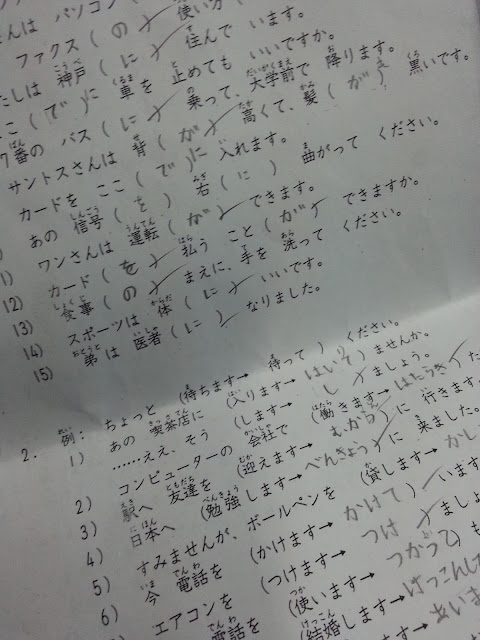 んは パソコン (
ファクス ( の ) 使い方
たしは 神戸 ( に ) 住んで います。
ここ ( で )に 車を 止めても いいですか。
7番の バス ( に ) 乗って、大学前で 降ります。
サントスさんは 背 ( が ) 高くて、髪 ( が ) 黒いです。
カードを ここ ( で )に 入れます。
あの 信号 ( を ) 右 ( に ) 曲がって ください。
11) ワンさんは 運転 ( が ) できます。
12) カード ( を ) 払う こと ( が ) できますか。
13) 食事 ( の ) まえに、手を 洗って ください。
14) スポーツは 体 ( に ) いいです。
15) 弟は 医者 ( に ) なりました。
2. 例： ちょっと (待ちます→ 待って ) ください。
1) あの 喫茶店に (入ります→ はいそ ) ませんか。
……ええ、そう (します→ し ) ましょう。
2) コンピューターの 会社で (働きます→ はたらき ) た
3) 駅へ 友達を (迎えます→ むから ) に 行きます
4) 日本へ (勉強します→ べんきょう ) に 来ました。
5) すみませんが、ボールペンを (貸します→ かし
6) 今 電話を (かけます→ かけて ) います
エアコンを (つけます→ つけ ) ましょ
電話を (使います→ つかって ) も
(結婚します→ けっこんして
→ あいま